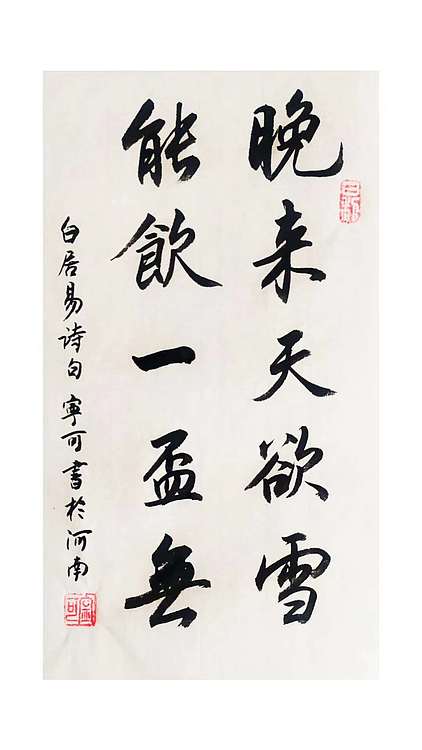 晚来天欲雪
能飲一盃無
白居易诗句 寧可書於河南